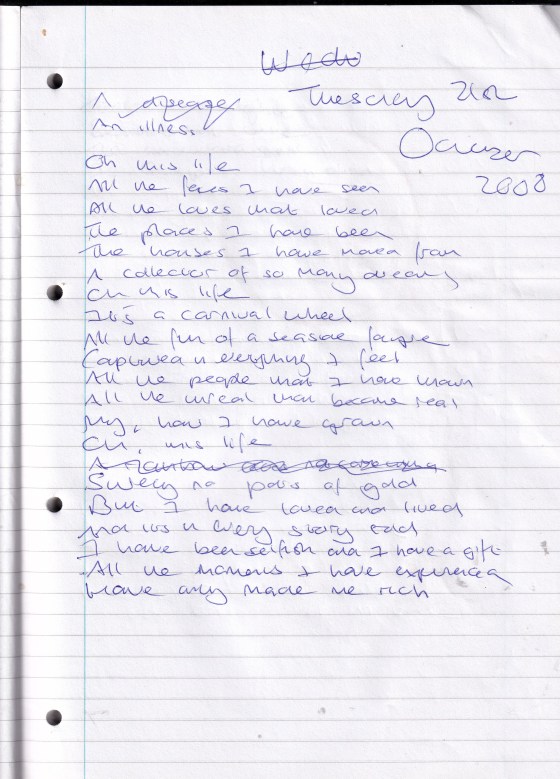 Tuesday 21st
A disease
An illness
October
2008
Oh this life
All the faces I have seen
All the loves that loved
The places I have been
The houses I have moved from
A collector of so many dreams
Oh this life
It's a carnival wheel
All the fun of a seaside
Captured in everything I feel
All the people that I have known
All the unreal that became real
My, how I have grown
Oh, this life
A rainbow
Surely no pots of gold
But I have loved and lived
every story told
I have been selfish and I have a gift
All the moments I have experienced
Have only made me rich